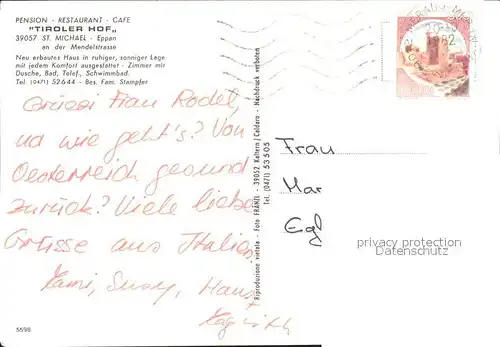 PENSION - RESTAURANT - CAFE
"TIROLER HOF"
39057 ST. MICHAEL - Eppan
an der Mendelstrasse
Neu erbautes Haus in ruhiger, sonniger Lage
mit jedem Komfort ausgestattet - Zimmer mit
Dusche, Bad, Telef., Schwimmbad.
Tel. (0471) 52644 - Bes. Fam. Stampfer
Frau Rodel,
na wie geht's? Von
Oesterreich gesund
zurück? Viele liebe
Grüsse aus Italien
Susy, Hans +
5598
Riproduzione vietata - Foto FRANZL - 39052 Kaltern / Caldaro - Nachdruck verboten
Tel. (0471) 53505
MERAN
82
Frau
Mar
Egl
privacy protection
watermark